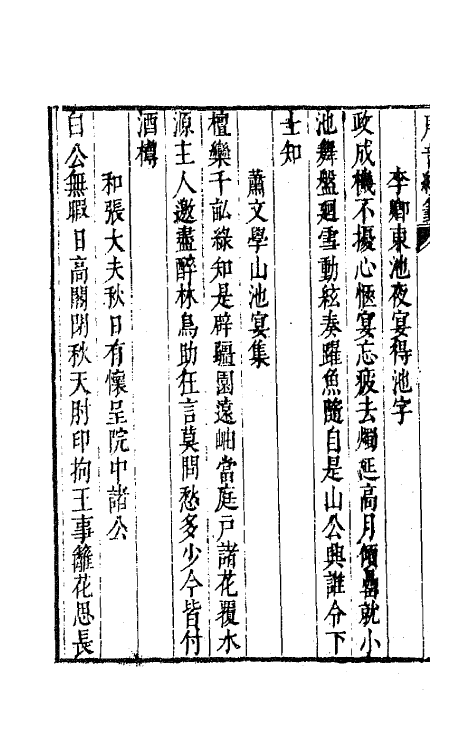 李卿東池夜宴得池字
政成機不擾心愜宴忘疲去燭延高月傾罍就小
池舞盤廻雪動絃奏躍魚隨自是山公興誰令下
士知
蕭文學山池宴集
檀欒千畝綠知是辟疆園遠岫當庭戸諸花覆水
源主人邀盡醉林鳥助狂言莫問愁多少今皆付
酒樽
和張大夫秋日有懷呈院中諸公
白公無暇日高閣閉秋天肘印拘王事籬花思長